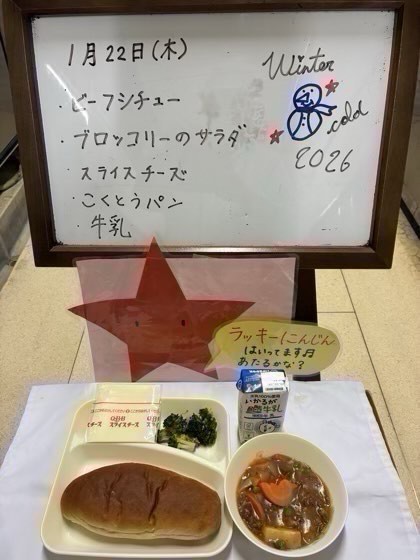 1月22日(木)
・ビーフシチュー
・ブロッコリーのサラダ
・スライスチーズ
・こくとうパン
・牛乳
Winter
cold
2026
ラッキーにんじん
はいってます♬
あたるかな？
スライスチーズ
いかるが
牛乳